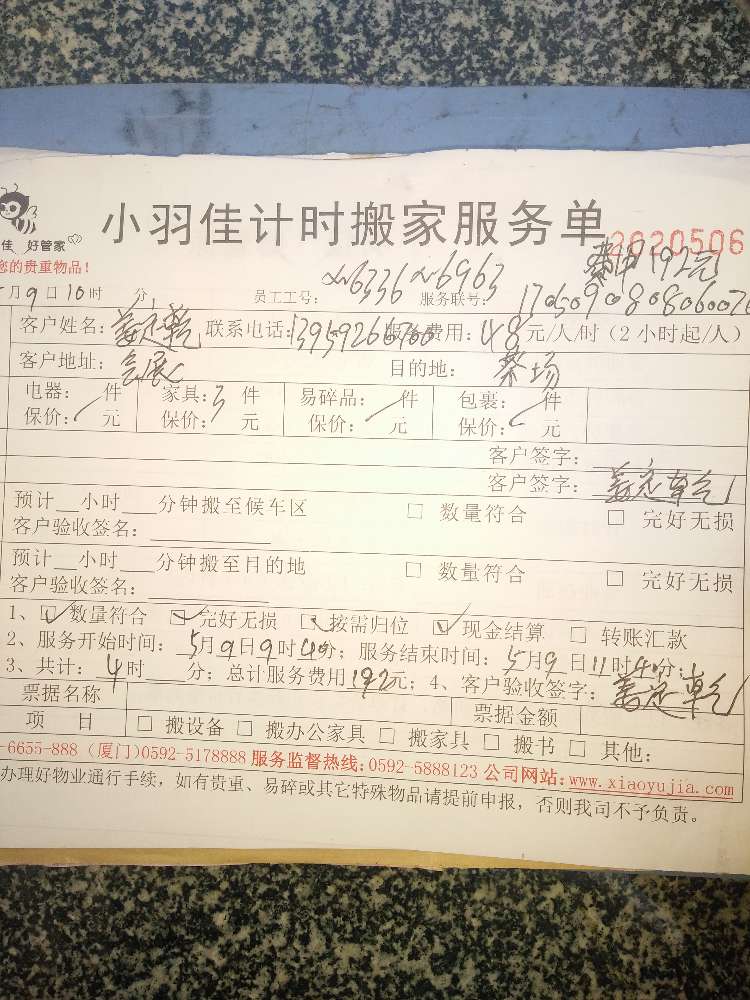 佳 好管家
小羽佳计时搬家服务单
2620506
您的贵重物品！
192元
月9日10时 分 员工工号： 6336 6963 服务联号： 170509080806007
客户姓名：姜定乾 联系电话：13959266700 服务费用：48元/人/时（2小时起/人）
客户地址：会展 目的地：蔡场
电器： 件 家具：3件 易碎品： 件 包裹： 件
保价： 元 保价： 元 保价： 元 保价： 元
客户签字：
客户签字：姜定乾
预计__小时___分钟搬至候车区 □ 数量符合 □ 完好无损
客户验收签名：
预计__小时___分钟搬至目的地 □ 数量符合 □ 完好无损
客户验收签名：
1、☑数量符合 ☑完好无损 ☑按需归位 ☑现金结算 □ 转账汇款
2、服务开始时间：5月9日9时40分；服务结束时间：5月9日11时40分；
3、共计：4时 分；总计服务费用192元；4、客户验收签字：姜定乾
票据名称 票据金额
项 目 □ 搬设备 □ 搬办公家具 □ 搬家具 □ 搬书 □ 其他：
6655-888（厦门）0592-5178888 服务监督热线：0592-5888123 公司网站：www.xiaoyujia.com
办理好物业通行手续，如有贵重、易碎或其它特殊物品请提前申报，否则我司不予负责。